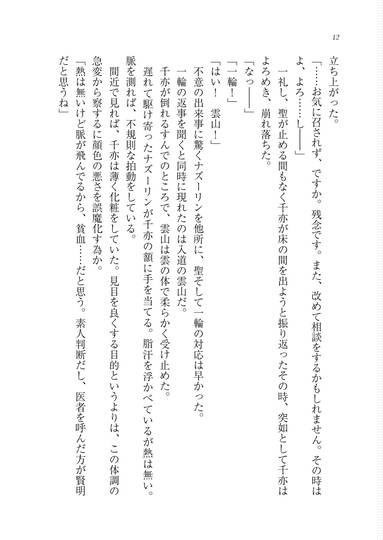 12
立ち上がった。
「……お気に召されず、ですか。残念です。また、改めて相談をするかもしれません。その時は
よ、よろ……し――」
一礼し、聖が止める間もなく千亦が床の間を出ようと振り返ったその時、突如として千亦は
よろめき、崩れ落ちた。
「なっ――」
「一輪!」
「はい! 雲山!」
不意の出来事に驚くナズーリンを他所に、聖そして一輪の対応は早かった。
一輪の返事を聞くと同時に現れたのは入道の雲山だ。
千亦が倒れるすんでのところで、雲山は雲の体で柔らかく受け止めた。
遅れて駆け寄ったナズーリンが千亦の額に手を当てる。脂汗を浮かべているが熱は無い。
脈を測れば、不規則な拍動をしている。
間近で見れば、千亦は薄く化粧をしていた。見目を良くする目的というよりは、この体調の
急変から察するに顔色の悪さを誤魔化す為か。
「熱は無いけど脈が飛んでるから、貧血……だと思う。素人判断だし、医者を呼んだ方が賢明
だと思うね」